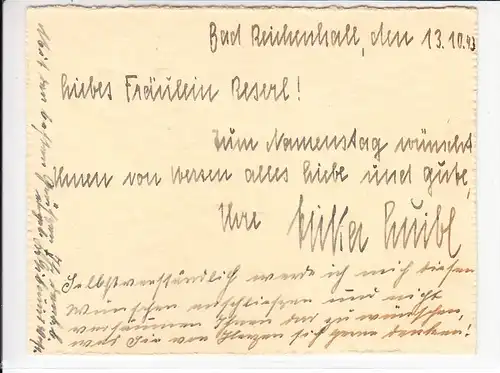 Bad Reichenhall, den 13.10.43
Liebes Fräulein Reserl!
Zum Namenstag wünscht
Ihnen von Herzen alles Liebe und Gute,
Ihre
Selbstverständlich werde ich mich diesen
Wünschen anschließen und nicht
versäumen Ihnen das zu wünschen,
was Sie von Herzen sich gerne denken!
Mit den besten Grüßen